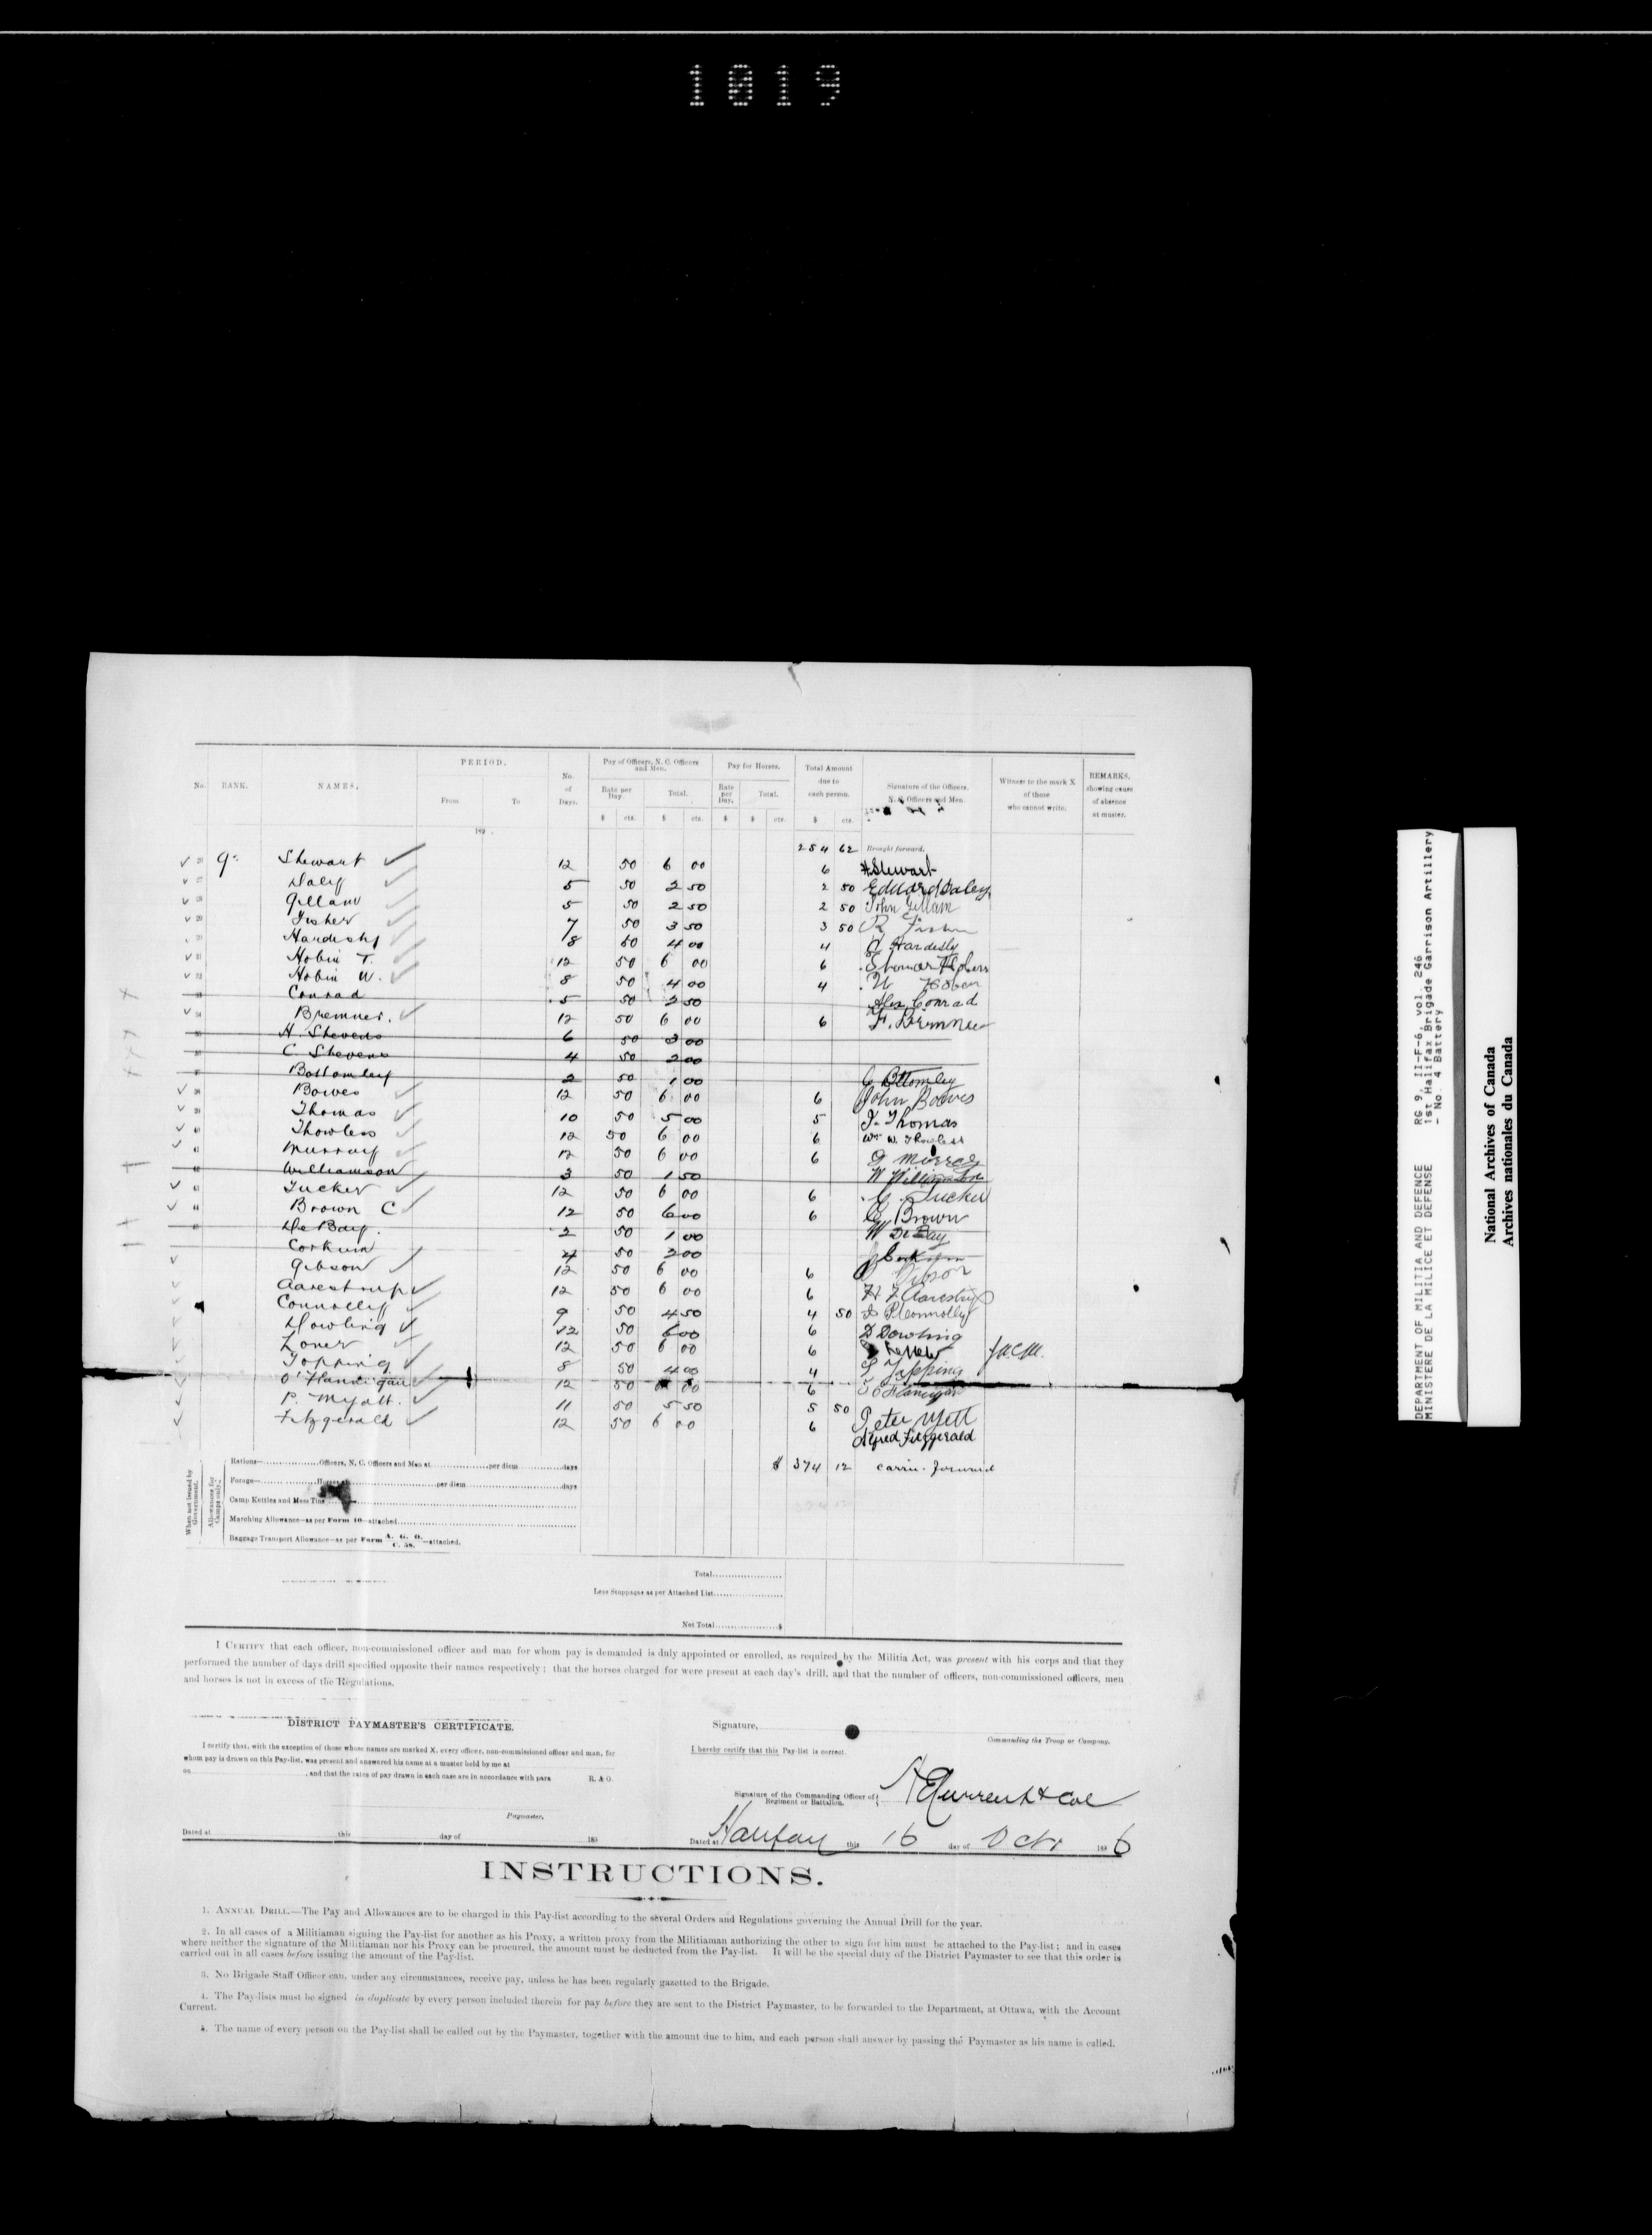 1019
PERIOD.
Pay of Officers, N. C. Officers and Men.
Pay for Horses.
Total Amount due to each person.
No. RANK. NAMES. From To No. of Days. Rate per Day. Total. Rate per Day. Total. Signature of the Officers, N. C. Officers and Men. Witness to the mark X of those who cannot write. REMARKS, showing cause of absence at muster.
$ cts. $ cts. $ $ cts. $ cts.
189 .
254 62 Brought forward.
Stewart 12 50 6 00 6 H Stewart
Daly 5 50 2 50 2 50 Edward Daley
Gillam 5 50 2 50 2 50 John Gillam
Fisher 7 50 3 50 3 50 R Fisher
Hardisty 8 50 4 00 4 Hardisty
Hobin T. 12 50 6 00 6 Thomas Hobin
Hobin W. 8 50 4 00 4 W
Conrad 5 50 2 50 Alex Conrad
Bremner. 12 50 6 00 6 F. Bremner
H. Stevens 6 50 3 00
C Stevens 4 50 2 00
Bottomley 2 50 1 00 Bottomley
Bowes 12 50 6 00 6 John Bowes
Thomas 10 50 5 00 5 Thomas
Thowless 12 50 6 00 6 Wm W. Thowless
Murray 12 50 6 00 6 G Murray
Williamson 3 50 1 50 W Williamson
Tucker 12 50 6 00 6 Tucker
Brown C 12 50 6 00 6 C Brown
De Bay. 2 50 1 00 W De Bay
Corkum 4 50 2 00 J Corkum
Gibson 12 50 6 00 6 Gibson
Aarestrup 12 50 6 00 6 Aarestrup
Connolly 9 50 4 50 4 50 P Connolly
Dowling 12 50 6 00 6 D Dowling
12 50 6 00 6
Topping 8 50 4 00 4 Topping
O'Flannigan 12 50 6 00 6 O Flanigan
P. Myatt. 11 50 5 50 5 50 Peter Myett
Fitzgerald 12 50 6 00 6 Alfred Fitzgerald
$ 374 12 Carrie. forward
When not issued by Government.
Allowances for Camps only.
Rations— Officers, N. C. Officers and Men at per diem days
Forage— Horses at per diem days
Camp Kettles and Mess Tins
Marching Allowance—as per Form 10—attached
Baggage Transport Allowance—as per Form A. G. O. C. 58. —attached.
Total
Less Stoppages as per Attached List
Net Total $
I CERTIFY that each officer, non-commissioned officer and man for whom pay is demanded is duly appointed or enrolled, as required by the Militia Act, was present with his corps and that they
performed the number of days drill specified opposite their names respectively; that the horses charged for were present at each day's drill, and that the number of officers, non-commissioned officers, men
and horses is not in excess of the Regulations.
DISTRICT PAYMASTER'S CERTIFICATE.
I certify that, with the exception of those whose names are marked X, every officer, non-commissioned officer and man, for
whom pay is drawn on this Pay-list, was present and answered his name at a muster held by me at
on , and that the rates of pay drawn in each case are in accordance with para R. & O.
Paymaster.
Dated at this day of 189
Signature,
Commanding the Troop or Company.
I hereby certify that this Pay-list is correct.
Signature of the Commanding Officer of Regiment or Battalion.
Dated at Halifax this 16 day of Oct 1896
INSTRUCTIONS.
1. ANNUAL DRILL.—The Pay and Allowances are to be charged in this Pay-list according to the several Orders and Regulations governing the Annual Drill for the year.
2. In all cases of a Militiaman signing the Pay-list for another as his Proxy, a written proxy from the Militiaman authorizing the other to sign for him must be attached to the Pay-list; and in cases
where neither the signature of the Militiaman nor his Proxy can be procured, the amount must be deducted from the Pay-list. It will be the special duty of the District Paymaster to see that this order is
carried out in all cases before issuing the amount of the Pay-list.
3. No Brigade Staff Officer can, under any circumstances, receive pay, unless he has been regularly gazetted to the Brigade.
4. The Pay-lists must be signed in duplicate by every person included therein for pay before they are sent to the District Paymaster, to be forwarded to the Department, at Ottawa, with the Account
Current.
5. The name of every person on the Pay-list shall be called out by the Paymaster, together with the amount due to him, and each person shall answer by passing the Paymaster as his name is called.
DEPARTMENT OF MILITIA AND DEFENCE RG 9, II-F-6, vol. 246
MINISTERE DE LA MILICE ET DEFENSE 1st Halifax Brigade Garrison Artillery
- No. 4 Battery
National Archives of Canada
Archives nationales du Canada